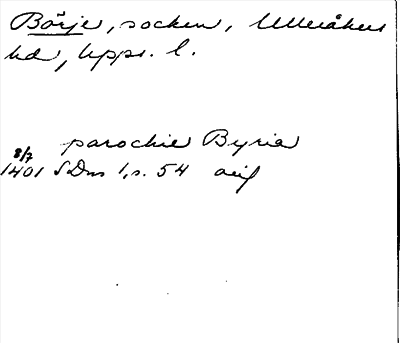 Börje, socken, Ulleråkers
hd, Upps. l.
parochie Byria
8/7
1401 SDns 1, s. 54 avs